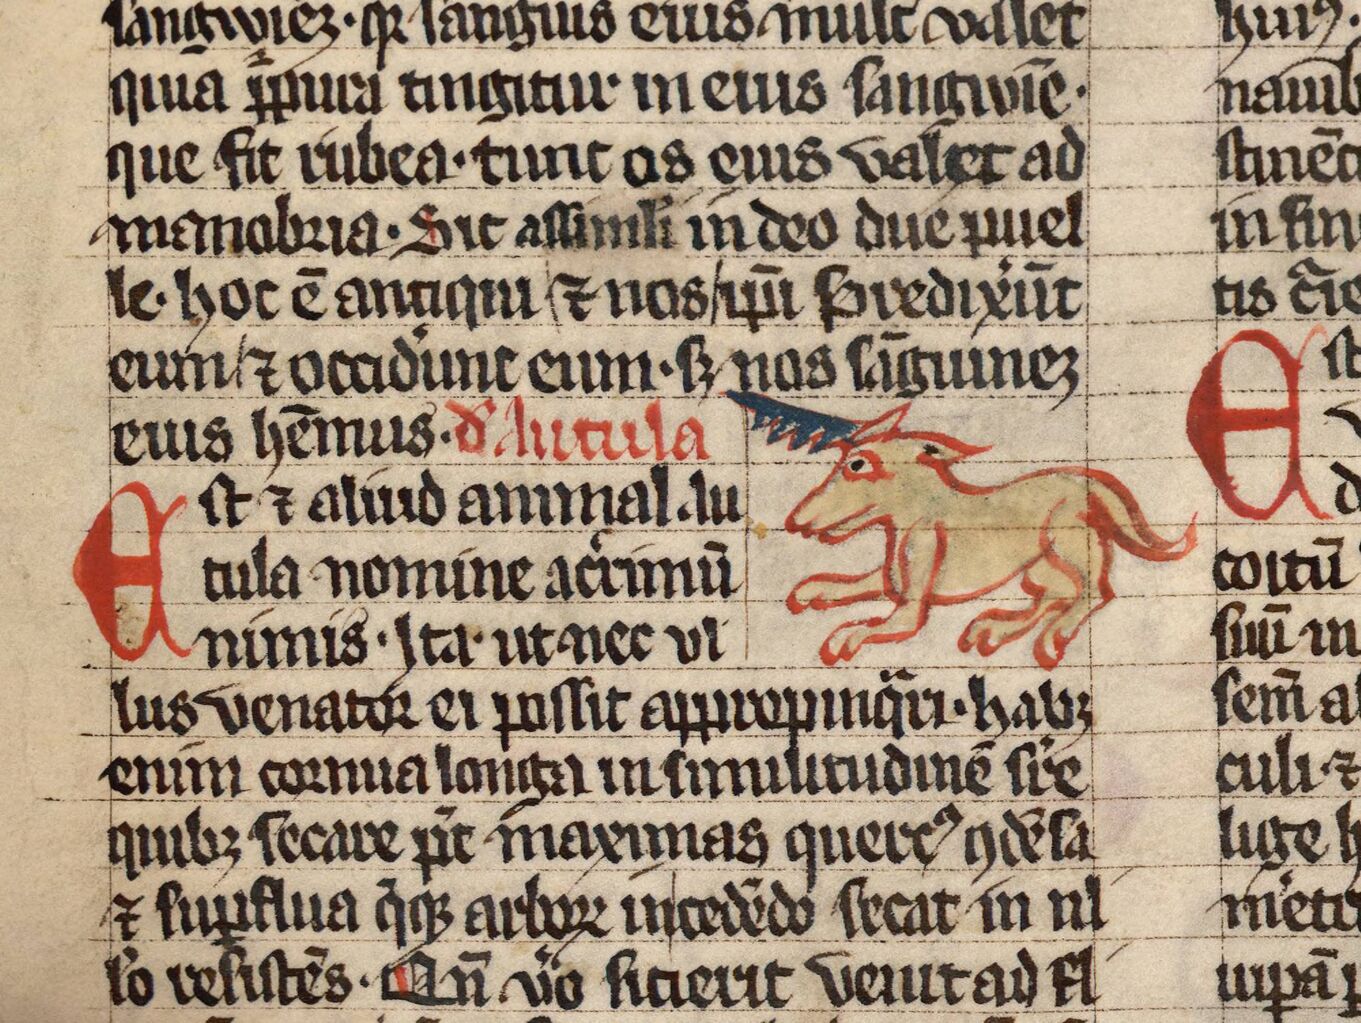 sangwiez · qr sanguis eius mult valet
quia p̄pura tingitur in eius sangwīe ·
que fit rubea · tunc os eius valet ad
manobria · Sic assimili in deo due puel
le · hoc ē antiqui ⁊ nos ip̄i predixer̄ūt
eum ⁊ occider̄unt eum · sꝫ nos sāguineꝫ
eius hēmus · d' Autula
Est ⁊ aliud animal Au
tula nomine acrimū
nimis · Ita ut nec vl
lus venator ei possit appropinq̄ri · habꝫ
enim cornua longa in similitudinē sr̄e
quibꝫ secare pt̄ maximas querc9 ꝯdēsa
⁊ supflua q̄qꝫ arboꝝ incedēdo secat in nl
lo resistēs · Qn̄ vo sitierit venit ad fl
hui9 ·
nauib
stinēt
in fin
tis c̄ie
E st
v
d
coitū
suū in
sem̄ al
culi · ⁊
luge h
meto
uipā p